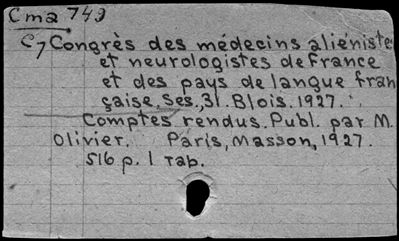 Cma 743
C7 Congrès des médecins aliéniste
et neurologistes de France
et des pays de langue fran
çaise. Ses., 31. Blois. 1927.
Comptes rendus. Publ. par M.
Olivier. Paris, Masson, 1927.
516 p. 1 tab.